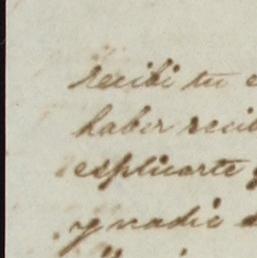 recibi tu
haber recib
esplicarte
y nadie